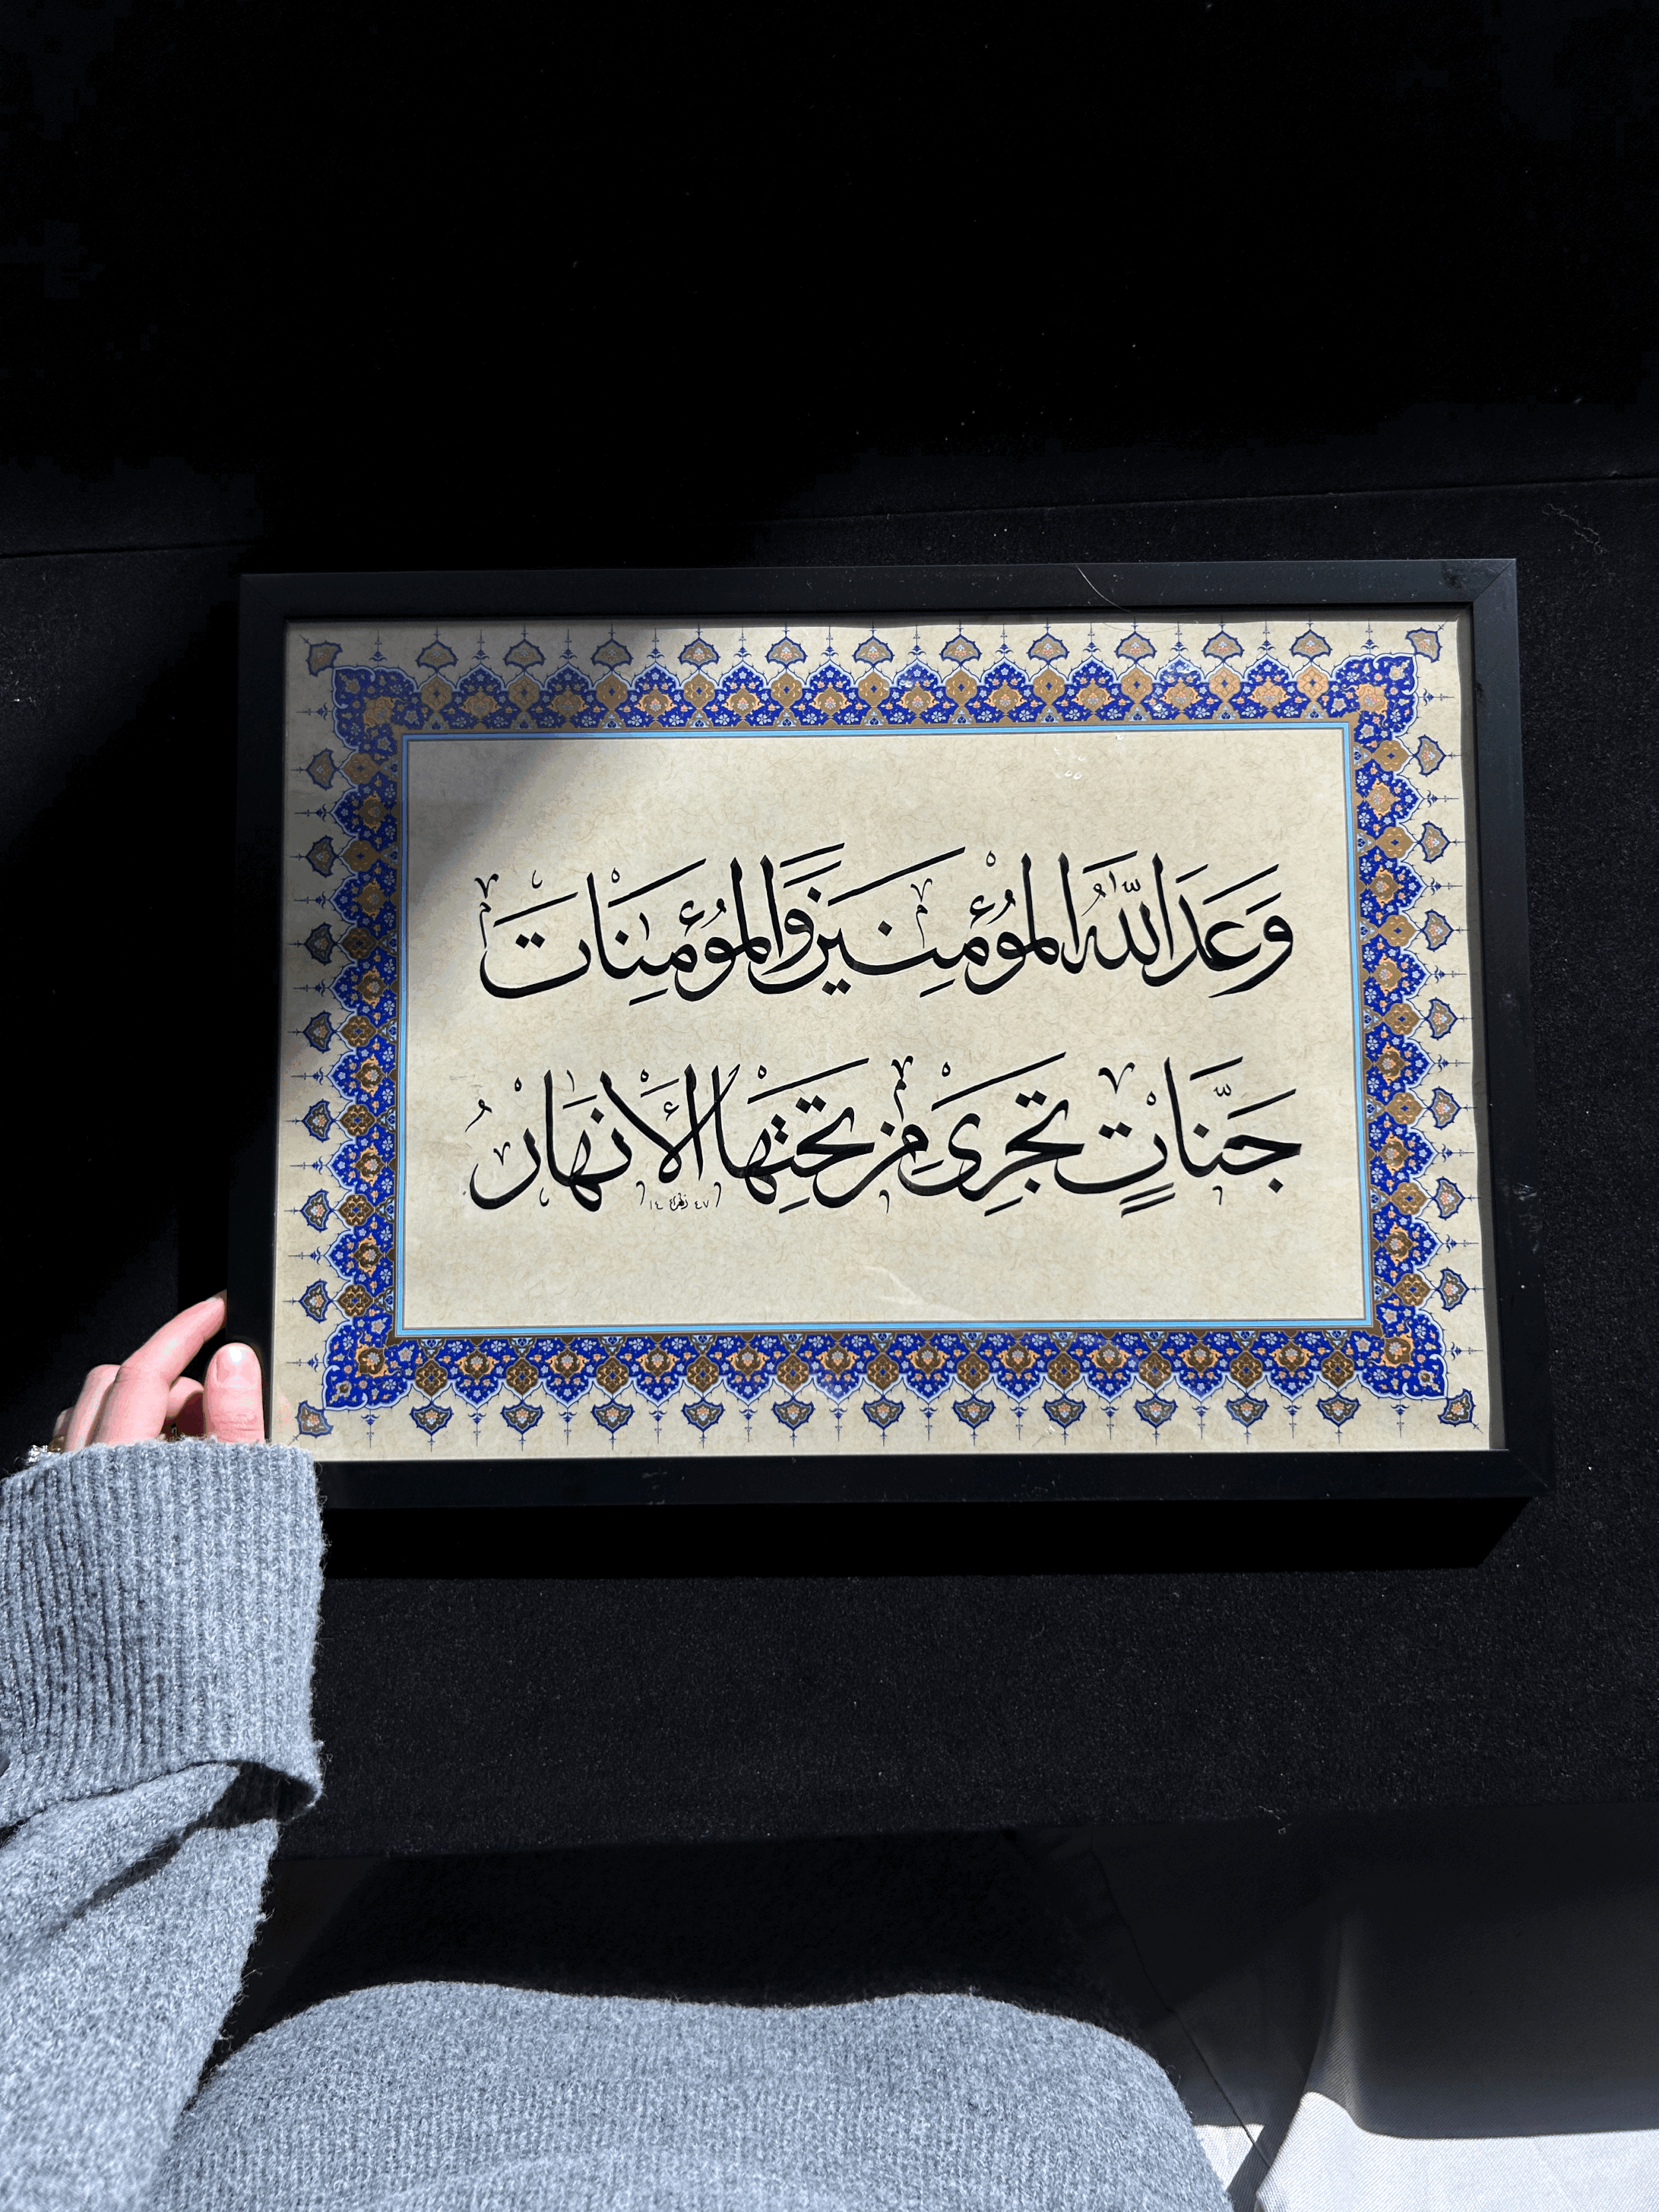 وَعَدَ اللّٰهُ المُؤْمِنِينَ وَالمُؤْمِنَاتِ
جَنَّاتٍ تَجْرِى مِنْ تَحْتِهَا الْأَنْهَارُ